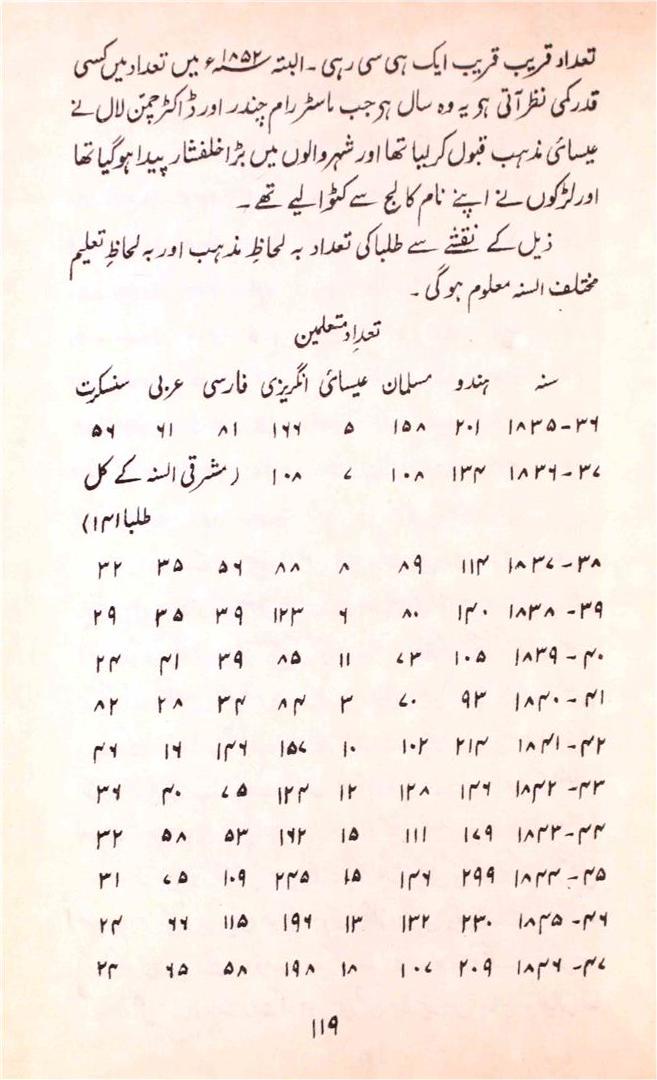 تعداد قریب قریب ایک ہی سی رہی ۔ البتہ ۱۸۵۲ء میں تعداد میں کسی
قدر کمی نظر آتی ہو یہ وہ سال ہو جب ماسٹر رام چندر اور ڈاکٹر چمن لال نے
عیسائی مذہب قبول کر لیا تھا اور شہر والوں میں بڑا خلفشار پیدا ہوگیا تھا
اور لڑکوں نے اپنے نام کالج سے کٹوا لیے تھے ۔
ذیل کے نقشے سے طلبا کی تعداد بہ لحاظِ مذہب اور بہ لحاظِ تعلیم
مختلف السنہ معلوم ہوگی ۔
تعدادِ متعلمین
سنہ ہندو مسلمان عیسائی انگریزی فارسی عربی سنسکرت
۱۸۳۵-۳۶ ۲۰۱ ۱۵۸ ۵ ۱۶۶ ۸۱ ۶۱ ۵۶
۱۸۳۶-۳۷ ۱۳۴ ۱۰۸ ۷ ۱۰۸ (مشرقی السنہ کے کل
طلبا ۱۴۱)
۱۸۳۷-۳۸ ۱۱۴ ۸۹ ۸ ۸۸ ۵۶ ۳۵ ۳۲
۱۸۳۸-۳۹ ۱۴۰ ۸۰ ۶ ۱۲۳ ۳۹ ۳۵ ۲۹
۱۸۳۹-۴۰ ۱۰۵ ۷۳ ۱۱ ۸۵ ۳۹ ۴۱ ۲۴
۱۸۴۰-۴۱ ۹۳ ۷۰ ۳ ۸۴ ۳۴ ۲۸ ۸۲
۱۸۴۱-۴۲ ۲۱۴ ۱۰۲ ۱۰ ۱۵۷ ۱۴۶ ۱۶ ۴۶
۱۸۴۲-۴۳ ۱۴۶ ۱۲۸ ۱۲ ۱۲۴ ۷۵ ۴۰ ۳۶
۱۸۴۳-۴۴ ۱۷۹ ۱۱۱ ۱۵ ۱۶۲ ۵۳ ۵۸ ۳۲
۱۸۴۴-۴۵ ۲۹۹ ۱۴۶ ۱۵ ۲۴۵ ۱۰۹ ۷۵ ۳۱
۱۸۴۵-۴۶ ۲۳۰ ۱۳۲ ۱۳ ۱۹۶ ۱۱۵ ۶۶ ۲۴
۱۸۴۶-۴۷ ۲۰۹ ۱۰۷ ۱۸ ۱۹۸ ۵۸ ۶۵ ۲۴
۱۱۹